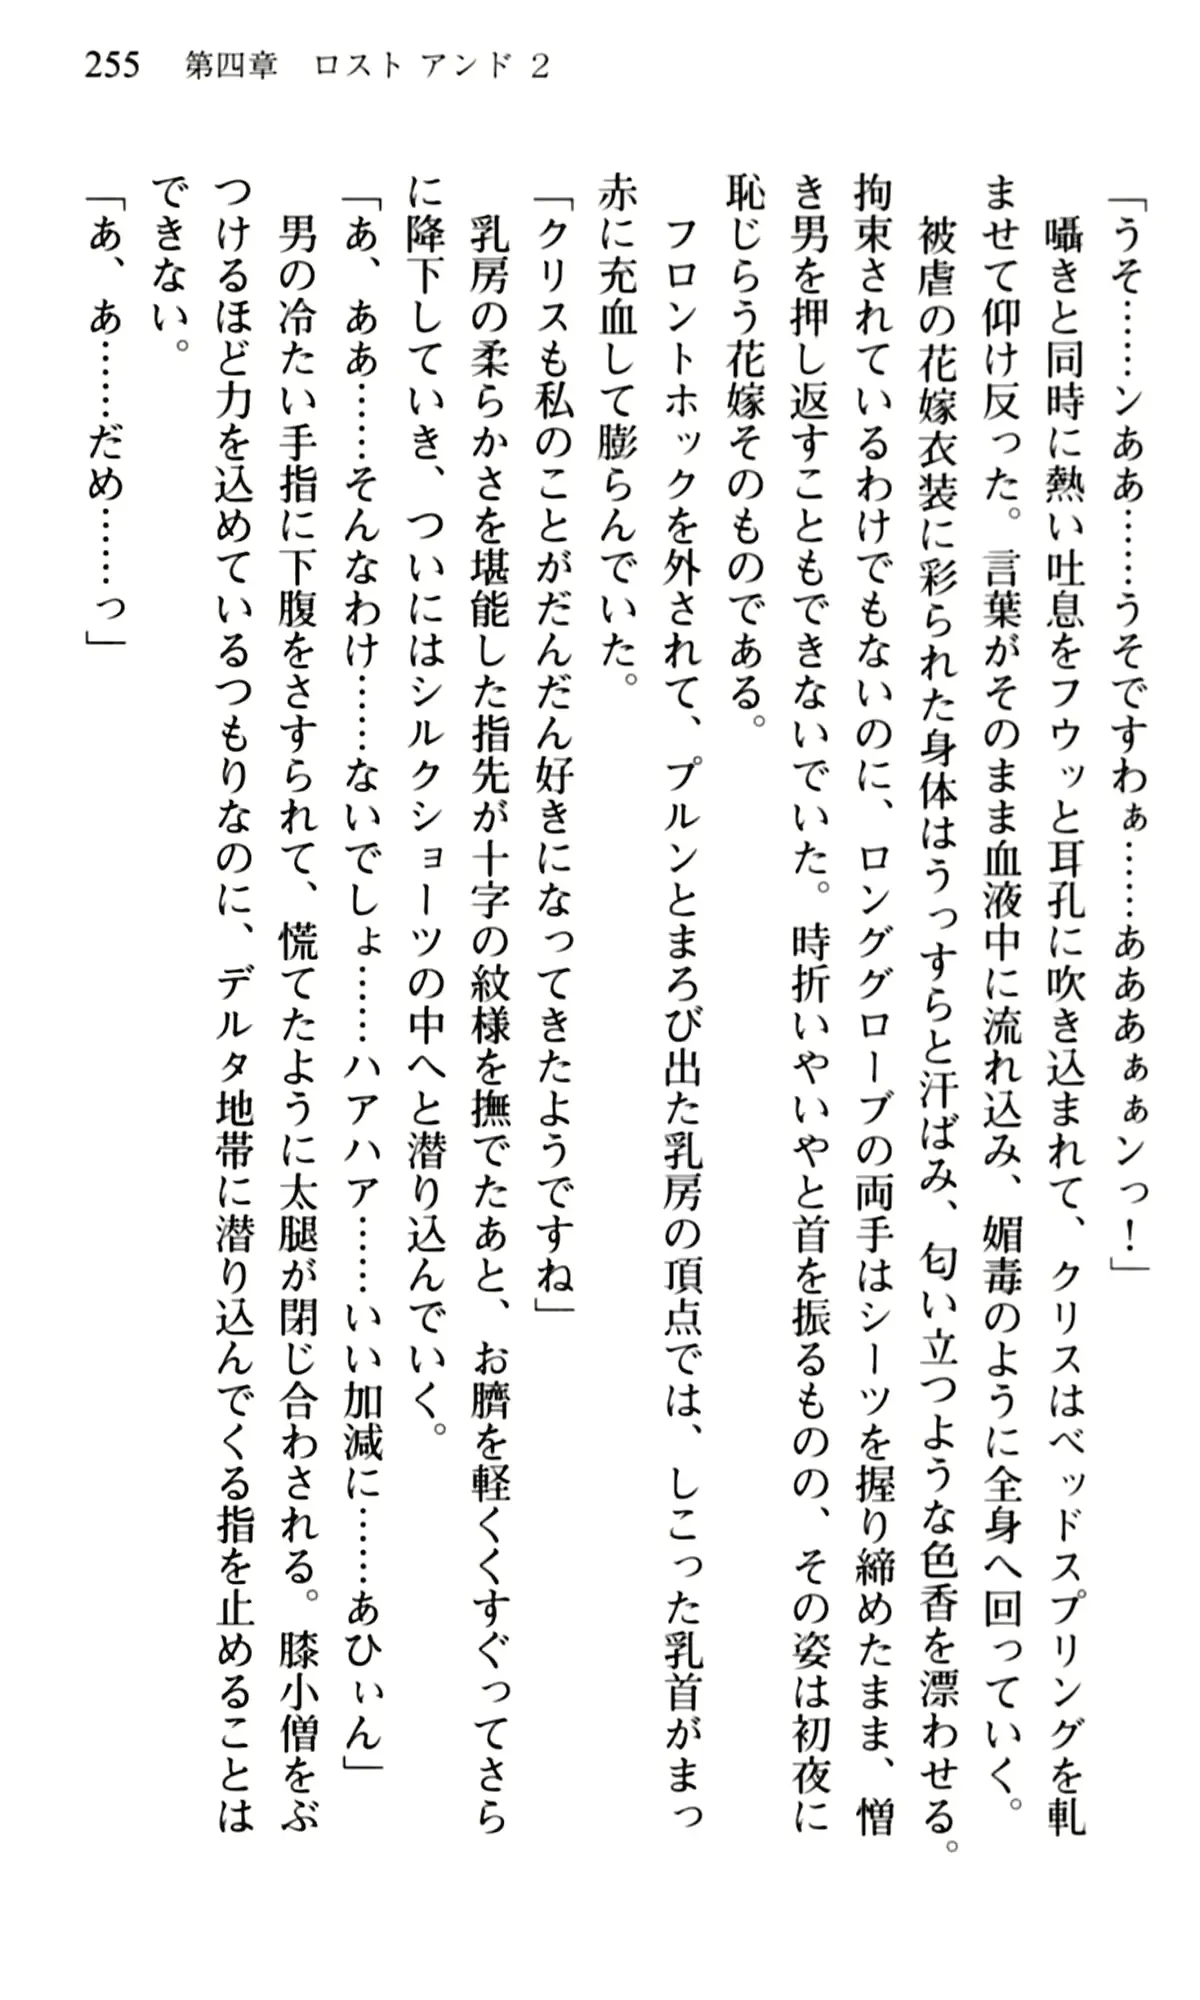 255　第四章　ロスト アンド 2
「うそ……ンああ……うそですわぁ……あああぁぁンっ！」
　囁きと同時に熱い吐息をフウッと耳孔に吹き込まれて、クリスはベッドスプリングを軋
ませて仰け反った。言葉がそのまま血液中に流れ込み、媚毒のように全身へ回っていく。
　被虐の花嫁衣装に彩られた身体はうっすらと汗ばみ、匂い立つような色香を漂わせる。
拘束されているわけでもないのに、ロンググローブの両手はシーツを握り締めたまま、憎
き男を押し返すこともできないでいた。時折いやいやと首を振るものの、その姿は初夜に
恥じらう花嫁そのものである。
　フロントホックを外されて、プルンとまろび出た乳房の頂点では、しこった乳首がまっ
赤に充血して膨らんでいた。
「クリスも私のことがだんだん好きになってきたようですね」
　乳房の柔らかさを堪能した指先が十字の紋様を撫でたあと、お臍を軽くくすぐってさら
に降下していき、ついにはシルクショーツの中へと潜り込んでいく。
「あ、ああ……そんなわけ……ないでしょ……ハアハア……いい加減に……あひぃん」
　男の冷たい手指に下腹をさすられて、慌てたように太腿が閉じ合わされる。膝小僧をぶ
つけるほど力を込めているつもりなのに、デルタ地帯に潜り込んでくる指を止めることは
できない。
「あ、あ……だめ……っ」